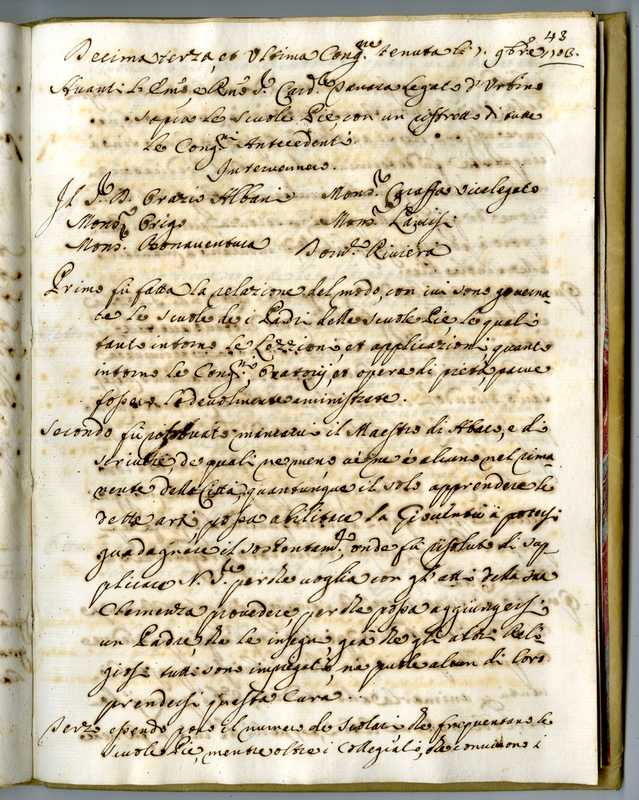 43
Decima terza, et Ultima Cong.ne tenuta li 7. 9bre 1703.
Avanti l'Emo e Rmo Sr. Card.le legato d'Urbino
sopra le Scuole Pie, con un ristretto di tutte
le Cong.ni Antecedenti.
Intervennero.
Il Sr. D. Orazio Albani Mons.r Caraffa vicelegato
Mons.r Origo Mons.r Lancisi
Mons.r Bonaventura Riviera
Primo fù fatta la relazione del modo, con cui sono governa-
te le scuole de i Padri delle Scuole Pie, le quali
tanto intorno le Lezzioni, et applicazioni, quanto
intorno le Cong.ni Oratorij, et opere di pietà, parve
fossero lodevolmente aministrate.
Secondo fù mancarvi il Maestro di Abaco, e di
scrivere de quali ne meno ve ne è alcuno nel rima-
nente della Città, quantunque il solo apprendere le
dette arti possa abilitare la Gioventù à potersi
guadagnare il sostentam.to, onde fù risoluto di sup-
plicare N. S.re perche voglia con gl'atti della sua
Clemenza provedere, perche possa aggiungersi
un Padre, che le insegni, già che gli altri Reli-
giosi tutti sono impiegati, ne puole alcun di loro
prendersi questa cura
Terzo essendo poco il numero de Scolari che frequentano le
Scuole Pie, mentre oltre i Collegiali, che convivono i